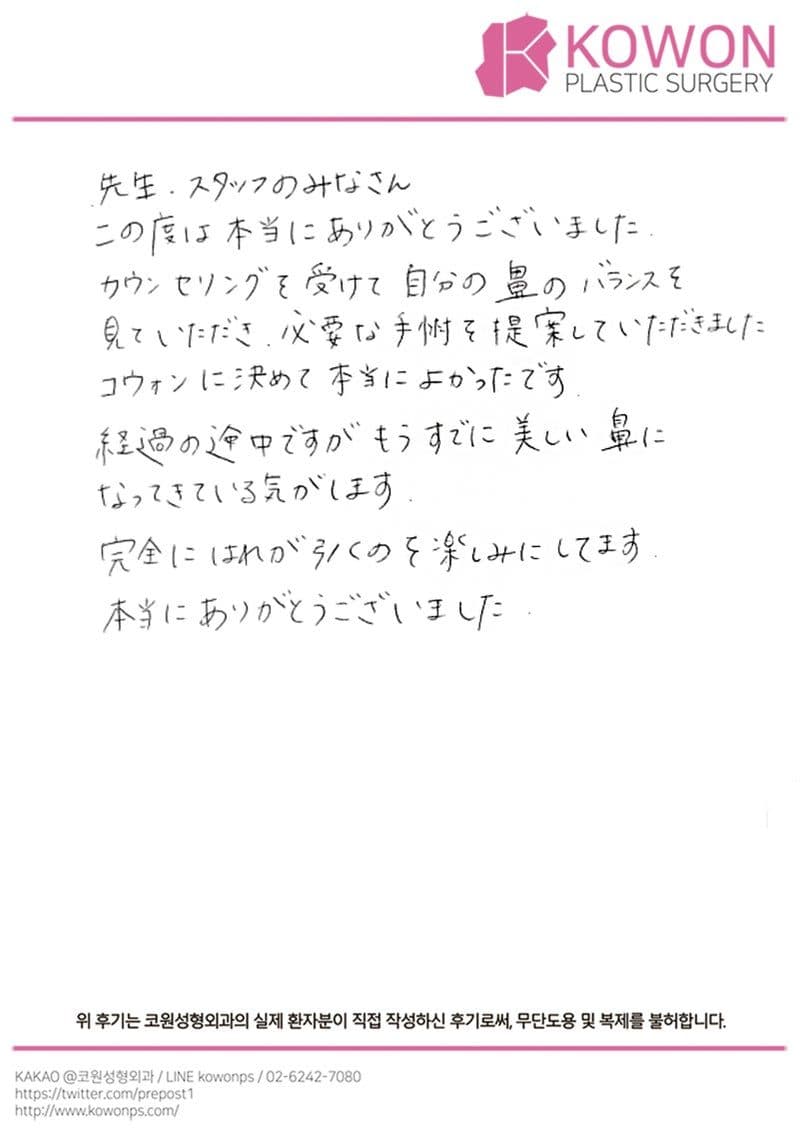 KOWON
PLASTIC SURGERY
先生．スタッフのみなさん
この度は本当にありがとうございました．
カウンセリングを受けて自分の鼻のバランスを
見ていただき．必要な手術を提案していただきました
コウォンに決めて本当によかったです．
経過の途中ですがもうすでに美しい鼻に
なってきている気がします．
完全にはれが引くのを楽しみにしてます．
本当にありがとうございました．
위 후기는 코원성형외과의 실제 환자분이 직접 작성하신 후기로써, 무단도용 및 복제를 불허합니다.
KAKAO @코원성형외과 / LINE kowonps / 02-6242-7080
https://twitter.com/prepost1
http://www.kowonps.com/